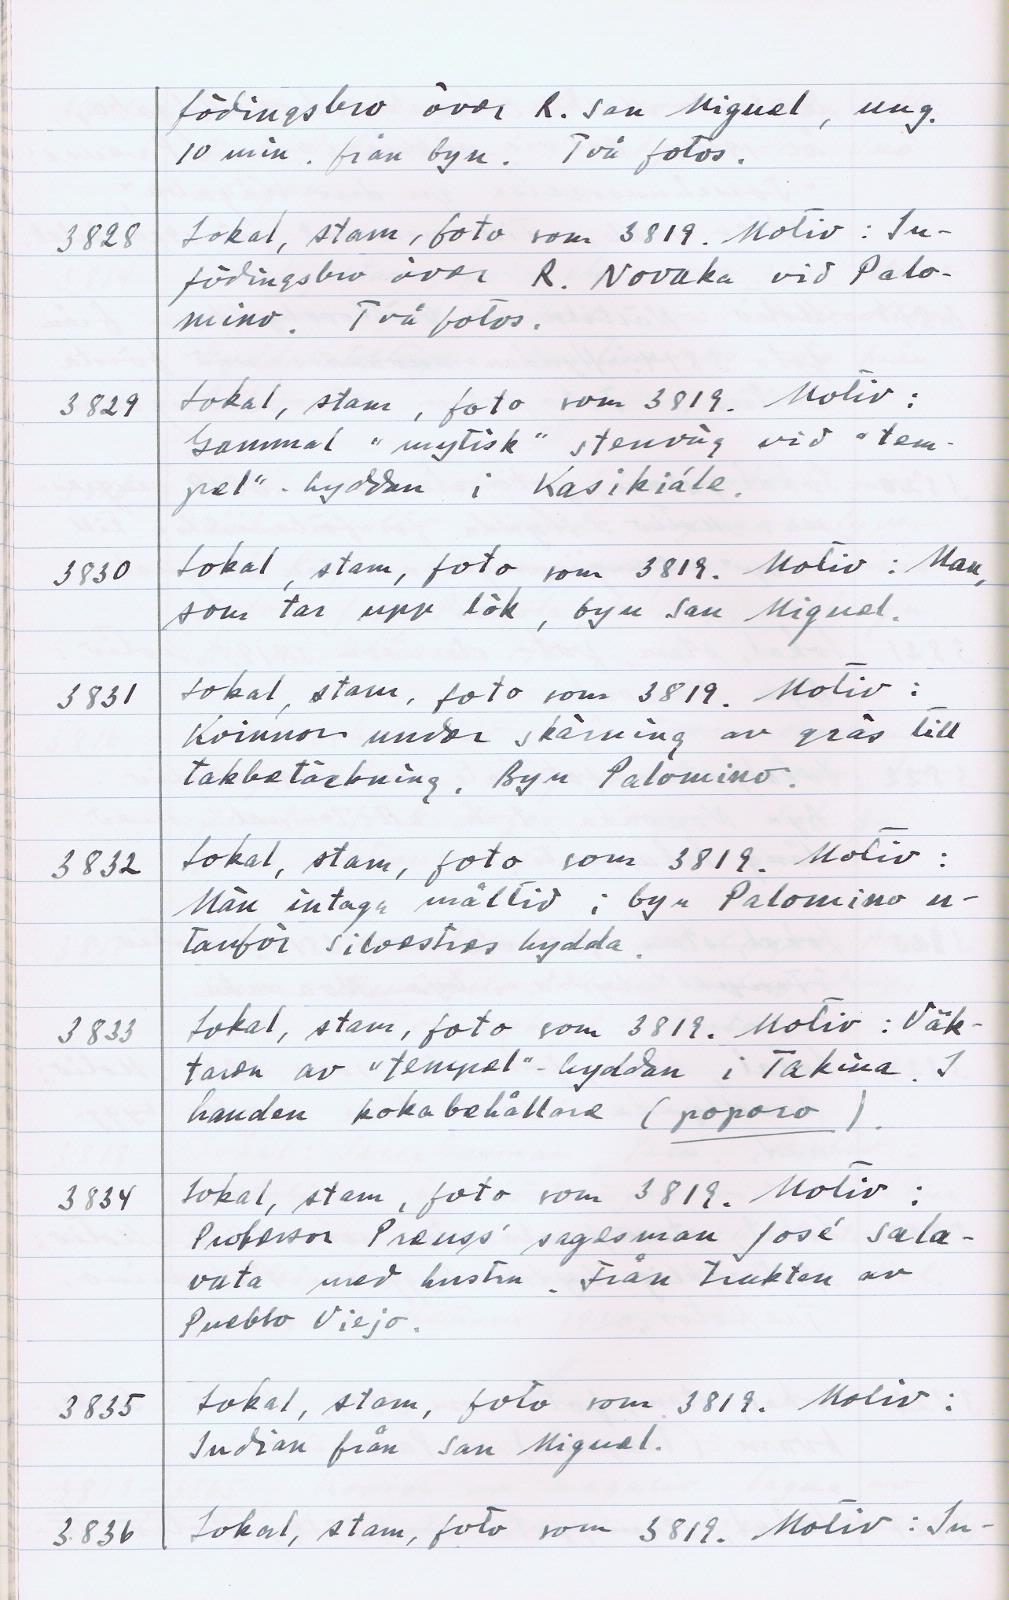 födingsbro över R. San Miguel, ung.
10 min. från byn. Två fotos.
3828 Lokal, stam, foto som 3819. Motiv: In-
födingsbro över R. Novaka vid Palo-
mino. Två fotos.
3829 Lokal, stam, foto som 3819. Motiv:
Gammal "mytisk" stenväg vid "tem-
pel"-hyddan i Kasikiále.
3830 Lokal, stam, foto som 3819. Motiv: Man,
som tar upp lök, byn San Miguel.
3831 Lokal, stam, foto som 3819. Motiv:
Kvinnor under skärning av gräs till
takbetäckning. Byn Palomino.
3832 Lokal, stam, foto som 3819. Motiv:
Män intaga måltid i byn Palomino u-
tanför Silvestres hydda.
3833 Lokal, stam, foto som 3819. Motiv: Väk-
taren av "tempel"-hyddan i Takina. I
handen kokabehållare (poporo).
3834 Lokal, stam, foto som 3819. Motiv:
Professor Preuss' sagesman José Sala-
vata med hustru. Från trakten av
Pueblo Viejo.
3835 Lokal, stam, foto som 3819. Motiv:
Indian från San Miguel.
3836 Lokal, stam, foto som 3819. Motiv: In-